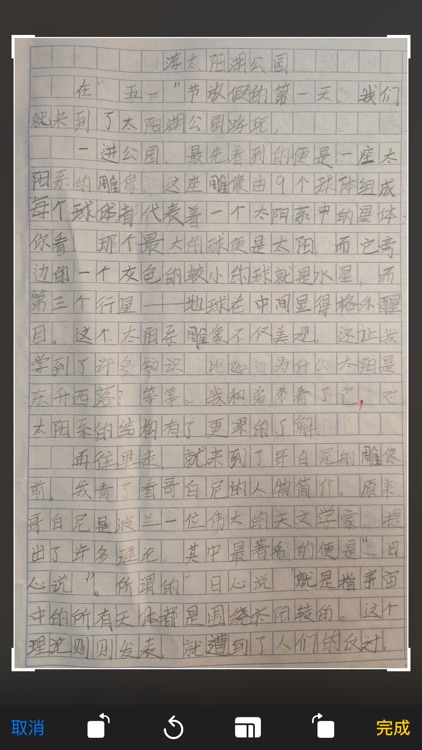 游太阳湖公园
在“五一”节放假的第一天，我们
就来到了太阳湖公园游玩。
一进公园，最先看到的便是一座太
阳系的雕像。这座雕像由9个球体组成
每个球体都代表着一个太阳系中的星体：
你看，那个最大的球便是太阳，而它旁
边的一个灰色的较小的球就是水星，而
第三个行星——地球在中间显得格外醒
目。这个太阳系雕像不仅美观，还让我
学到了许多知识，比如：为什么太阳是
东升西落？等等。我和弟弟看了它，对
太阳系的结构有了更深的了解。
再往里走，就来到了哥白尼的雕像
前。我看了看哥白尼的人物简介。原来
哥白尼是波兰一位伟大的天文学家，提
出了许多理论，其中最著名的便是“日
心说”。所谓的“日心说 就是指宇宙
中的所有天体都是围绕太阳转的。这个
理论刚刚发表，就遭到了人们的反对。
取消
完成